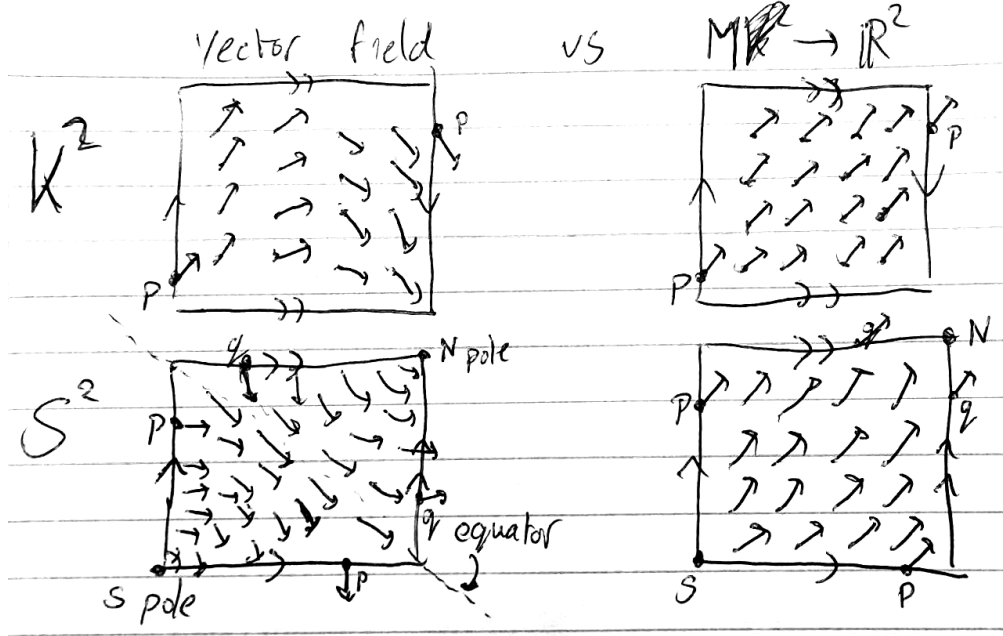 Vector field vs M → ℝ²
K²
P
P
P
P
S²
q
N pole
N
P
P
q
q
equator
S pole
P
S
P